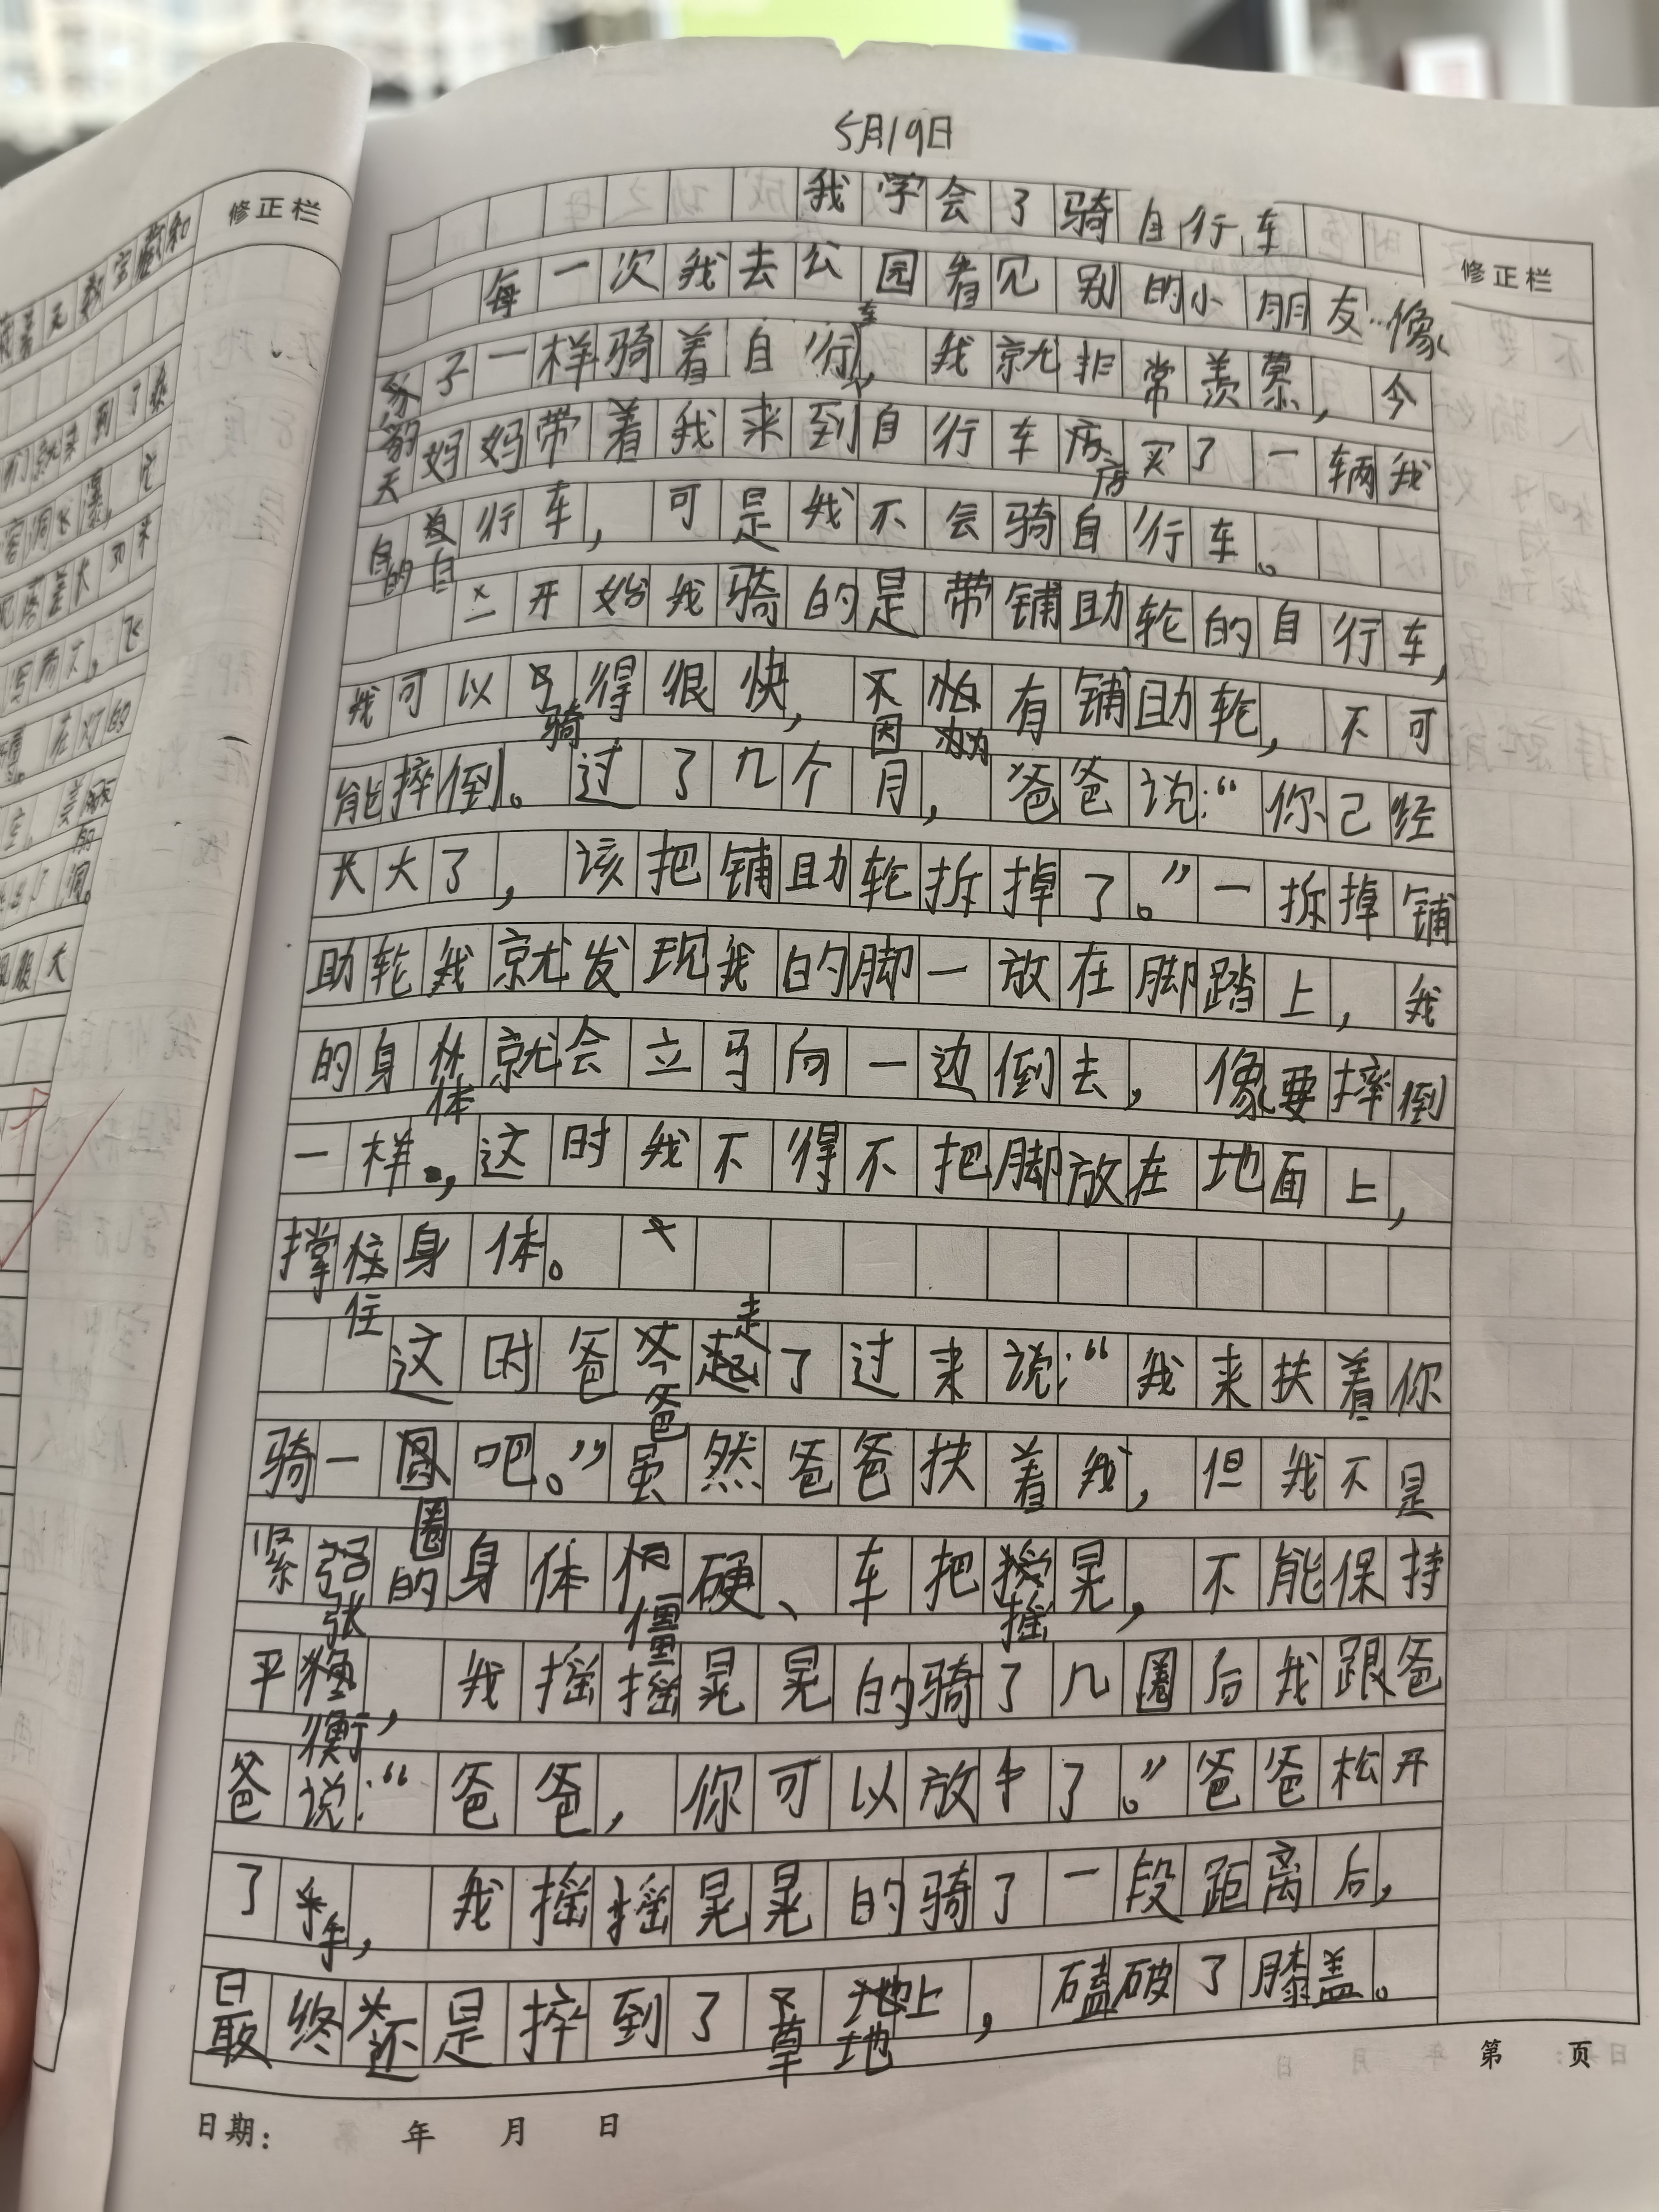 5月19日
我学会了骑自行车
修正栏
修正栏
每一次我去公园看见别的小朋友像
豹子一样骑着自行车，我就非常羡慕，今
天妈妈带着我来到自行车店买了一辆我
自的自行车，可是我不会骑自行车。
一开始我骑的是带铺助轮的自行车，
我可以骑得很快，因为有铺助轮，不可
能摔倒。过了几个月，爸爸说：“你己经
长大了，该把铺助轮拆掉了。”一拆掉铺
助轮我就发现我的脚一放在脚踏上，我
的身体就会立马向一边倒去，像要摔倒
一样，这时我不得不把脚放在地面上，
撑住身体。
这时爸爸走了过来说：“我来扶着你
骑一圈吧。”虽然爸爸扶着我，但我不是
紧张的身体僵硬、车把摇晃，不能保持
平衡，我摇摇晃晃的骑了几圈后我跟爸
爸说：“爸爸，你可以放手了。”爸爸松开
了手，我摇摇晃晃的骑了一段距离后，
最终还是摔到了草地上，磕破了膝盖。
第 页
日期： 年 月 日